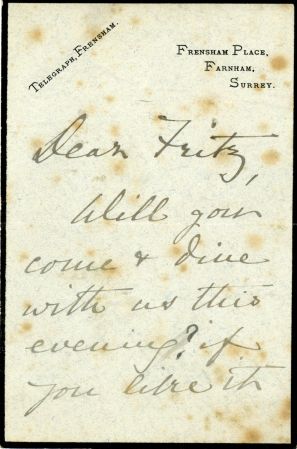 Telegraph, Frensham.
Frensham Place,
Farnham,
Surrey.
Dear Fritz,
Will you
come & dine
with us this
evening? if
you like it